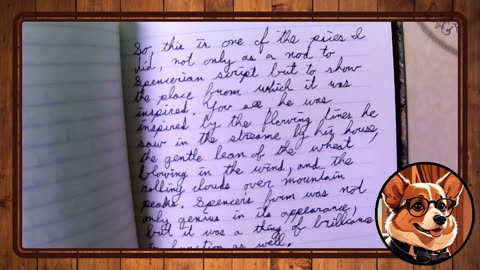 So, this is one of the pieces I
did, not only as a nod to
Spencerian script but to show
the place from which it was
inspired. You see, he was
inspired by the flowing lines he
saw in the streams by his house,
the gentle lean of the wheat
blowing in the wind, and the
rolling clouds over mountain
peaks. Spencer's form was not
only genius in its appearance,
but it was a thing of brilliance
in function as well.